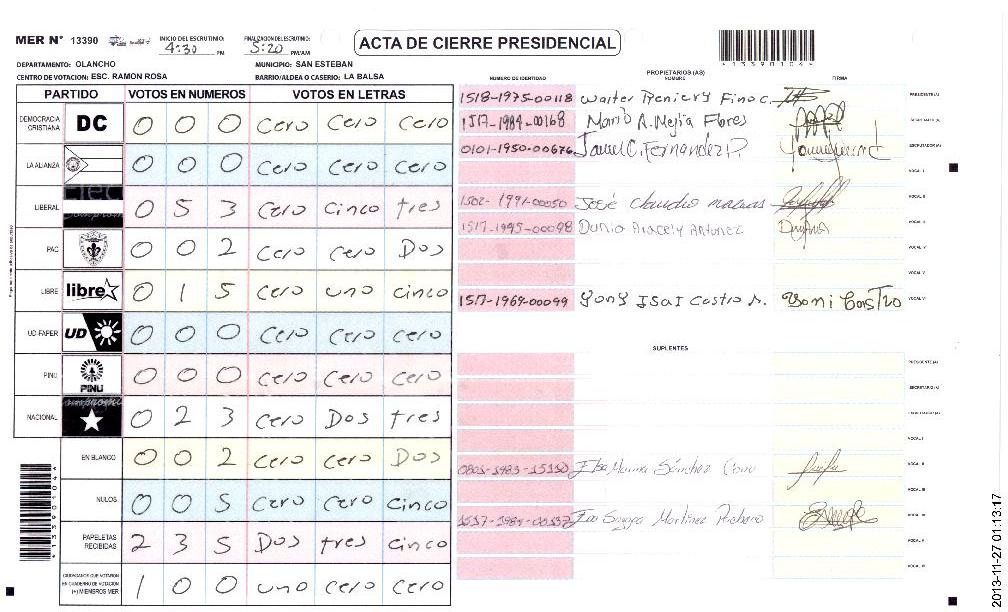 MER N° 13390
INICIO DEL ESCRUTINIO: 4:30 PM
FINALIZACION DEL ESCRUTINIO: 5:20 PM/AM
ACTA DE CIERRE PRESIDENCIAL
133901064
DEPARTAMENTO: OLANCHO
MUNICIPIO: SAN ESTEBAN
CENTRO DE VOTACION: ESC. RAMON ROSA
BARRIO/ALDEA O CASERIO: LA BALSA
PARTIDO VOTOS EN NUMEROS VOTOS EN LETRAS
DEMOCRACIA CRISTIANA DC 0 0 0 Cero Cero Cero
LA ALIANZA 0 0 0 Cero Cero Cero
LIBERAL 0 5 3 Cero Cinco tres
PAC 0 0 2 Cero Cero Dos
LIBRE libre 0 1 5 Cero uno cinco
UD-FAPER UD 0 0 0 Cero Cero Cero
PINU PINU 0 0 0 Cero Cero Cero
NACIONAL 0 2 3 Cero Dos tres
EN BLANCO 0 0 2 Cero Cero Dos
NULOS 0 0 5 Cero Cero cinco
PAPELETAS RECIBIDAS 2 3 5 Dos tres cinco
CIUDADANOS QUE VOTARON EN CUADERNO DE VOTACION (+) MIEMBROS MER 1 0 0 uno Cero Cero
PROPIETARIOS (AS)
NUMERO DE IDENTIDAD NOMBRE FIRMA
1518-1975-00118 Walter Reniery Fino C. PRESIDENTE (A)
1517-1984-00168 Mario R. Mejia Flores SECRETARIO (A)
0101-1950-00676 Fernandez P. ESCRUTADOR (A)
VOCAL I
1502-1991-00050 José Claudio VOCAL II
1517-1995-00098 Dunia Aracely Antunez VOCAL III
VOCAL IV
VOCAL V
1517-1969-00099 Yony Isai Castro A. Yoni Castro VOCAL VI
SUPLENTES
PRESIDENTE (A)
SECRETARIO (A)
ESCRUTADOR (A)
VOCAL I
Elsa Marina Sánchez VOCAL II
VOCAL III
Martinez Pacheco VOCAL IV
VOCAL V
VOCAL VI
2013-11-27 01:13:17